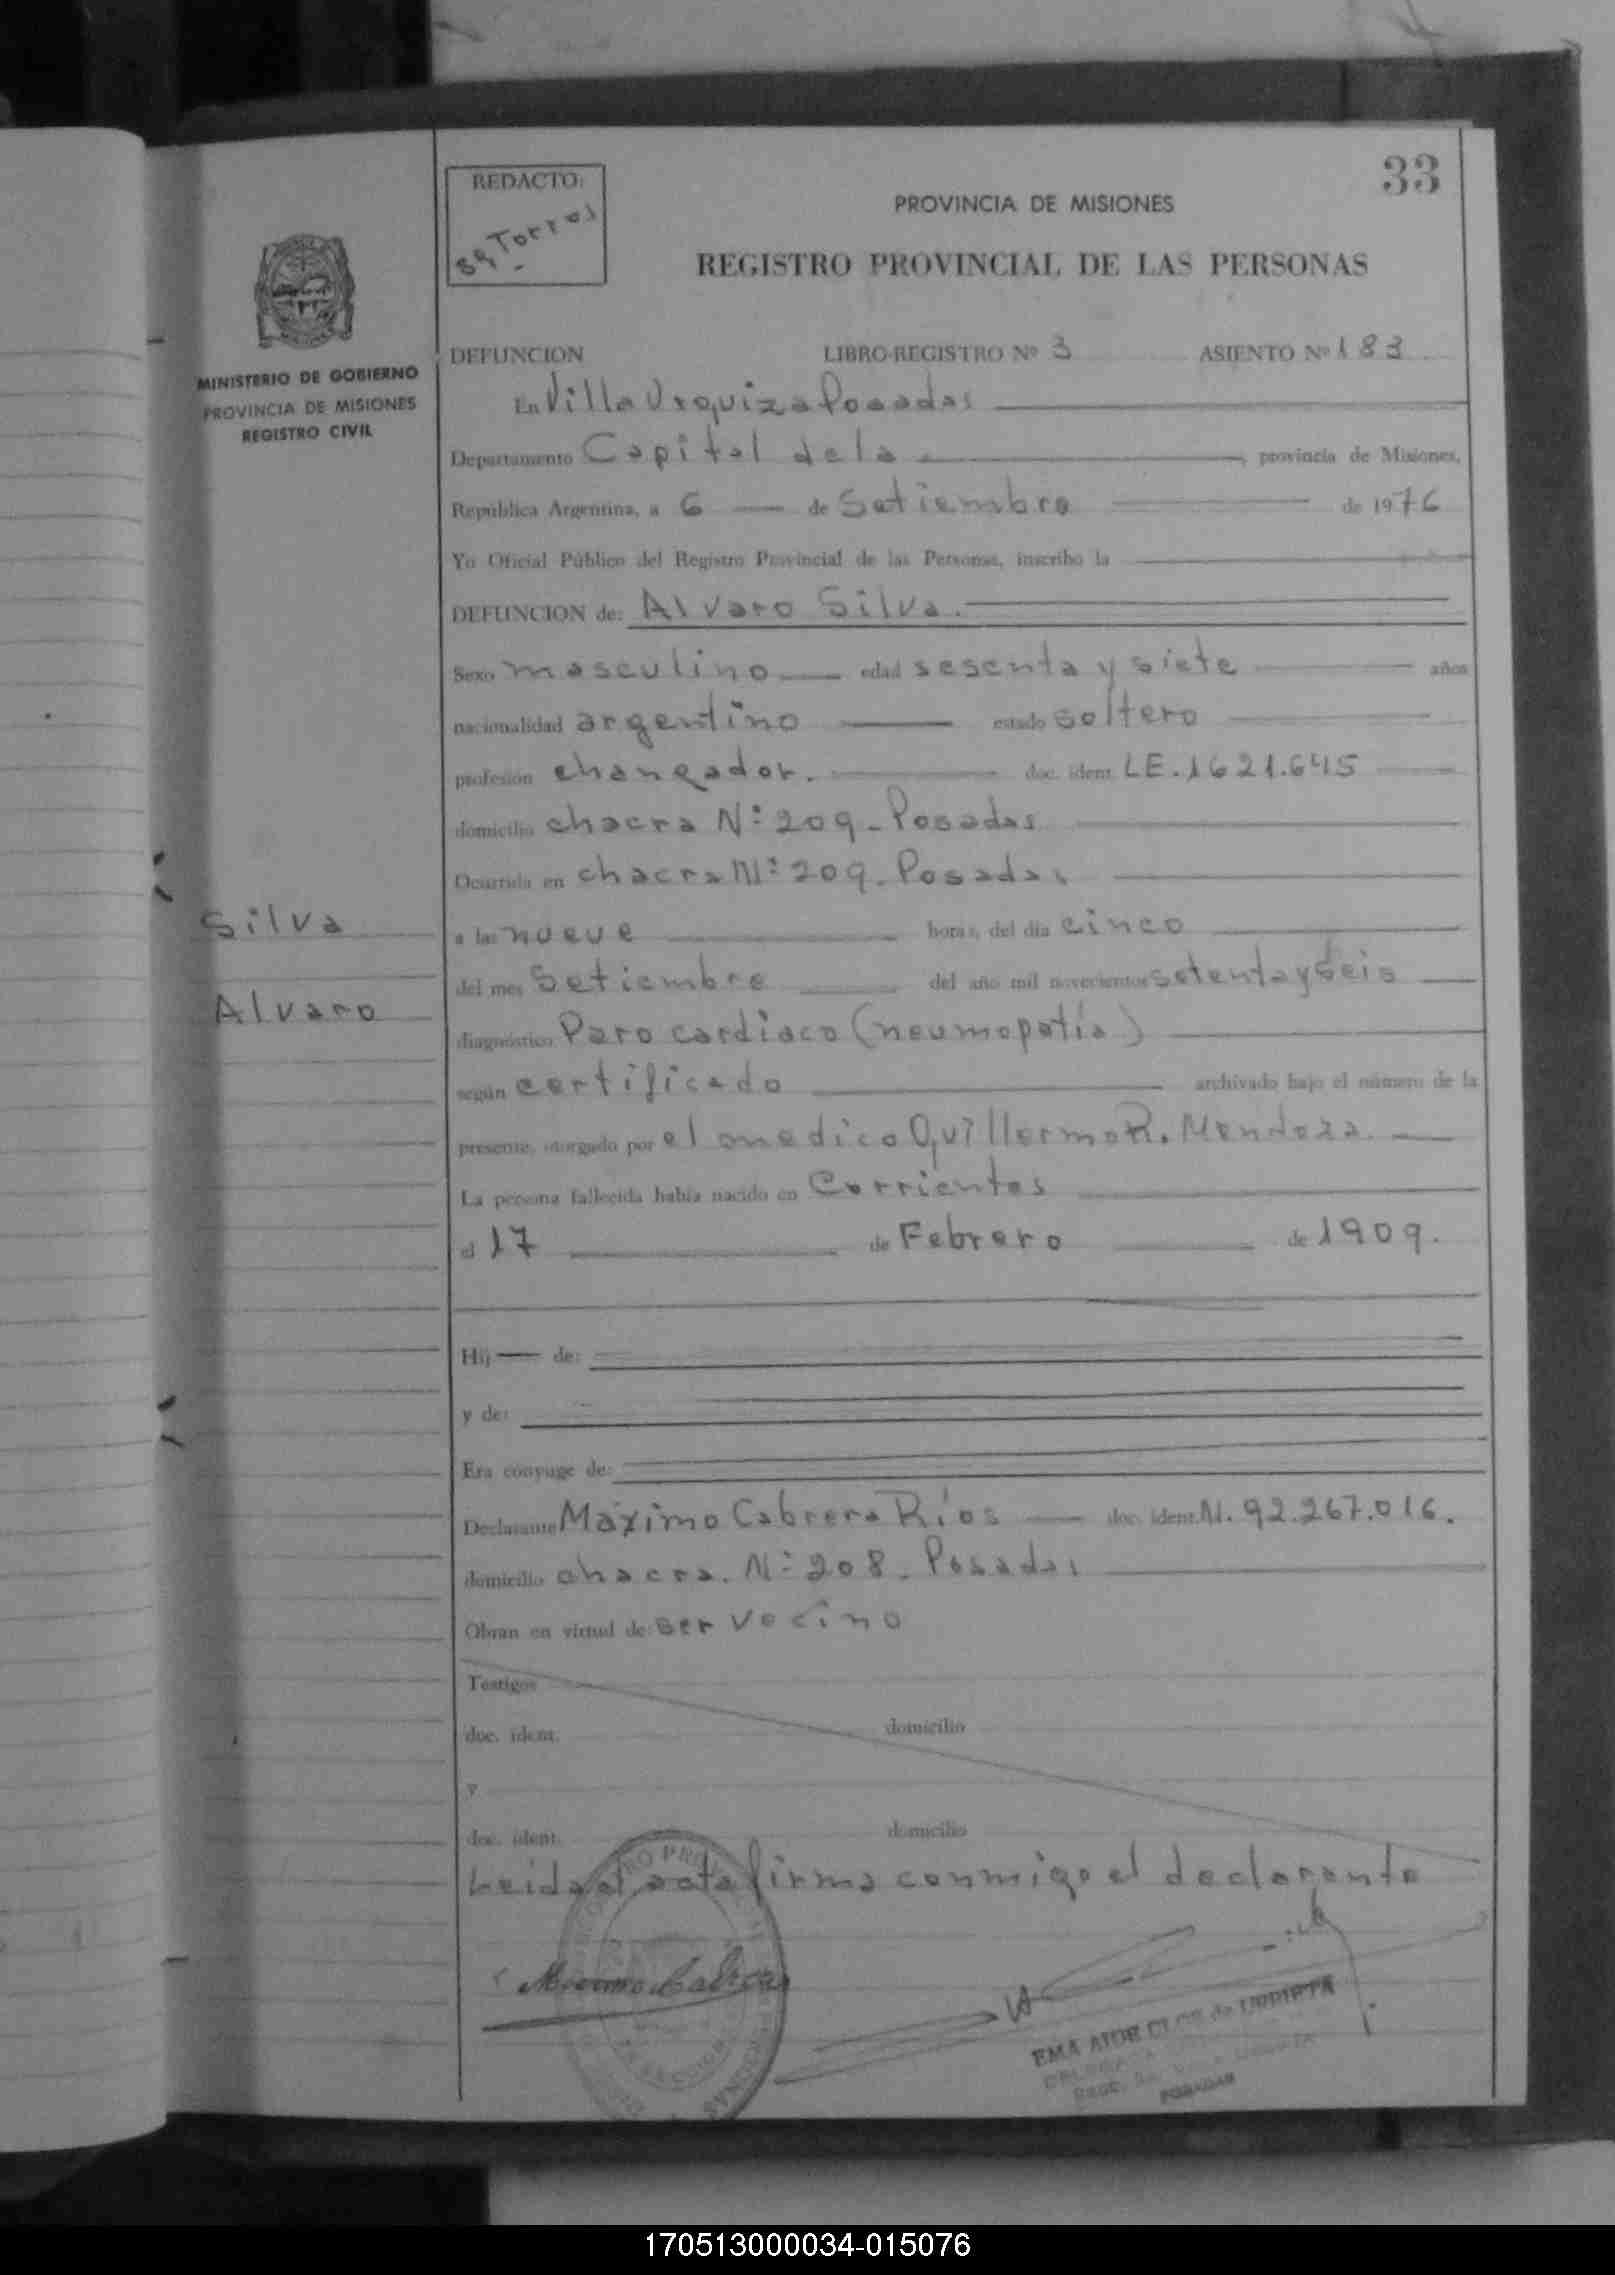 33
REDACTO:
Torres
PROVINCIA DE MISIONES
REGISTRO PROVINCIAL DE LAS PERSONAS
MINISTERIO DE GOBIERNO
PROVINCIA DE MISIONES
REGISTRO CIVIL
DEFUNCION LIBRO-REGISTRO Nº 3 ASIENTO Nº 183
En Villa Urquiza Posadas
Departamento Capital de la provincia de Misiones,
República Argentina, a 6 de Setiembre de 1976
Yo Oficial Público del Registro Provincial de las Personas, inscribo la
DEFUNCION de: Alvaro Silva.
Sexo masculino edad sesenta y siete años
nacionalidad argentino estado soltero
profesión changador. doc. ident. LE. 1621.645
domicilio chacra Nº 209 - Posadas
Ocurrida en chacra Nº 209 - Posadas
a las nueve horas, del día cinco
del mes Setiembre del año mil novecientos setenta y seis
diagnóstico Paro cardiaco (neumopatía)
según certificado archivado bajo el número de la
presente, otorgado por el medico Guillermo R. Mendoza.
La persona fallecida había nacido en Corrientes
el 17 de Febrero de 1909.
Hij de:
y de:
Era cónyuge de:
Declarante Máximo Cabrera Ríos doc. ident. N. 92.267.016.
domicilio chacra. Nº 208 - Posadas
Obran en virtud de: ser vecino
Testigos
doc. ident. domicilio
y
doc. ident. domicilio
Leida el acta firma conmigo el declarante
Silva
Alvaro
POSADAS
170513000034-015076